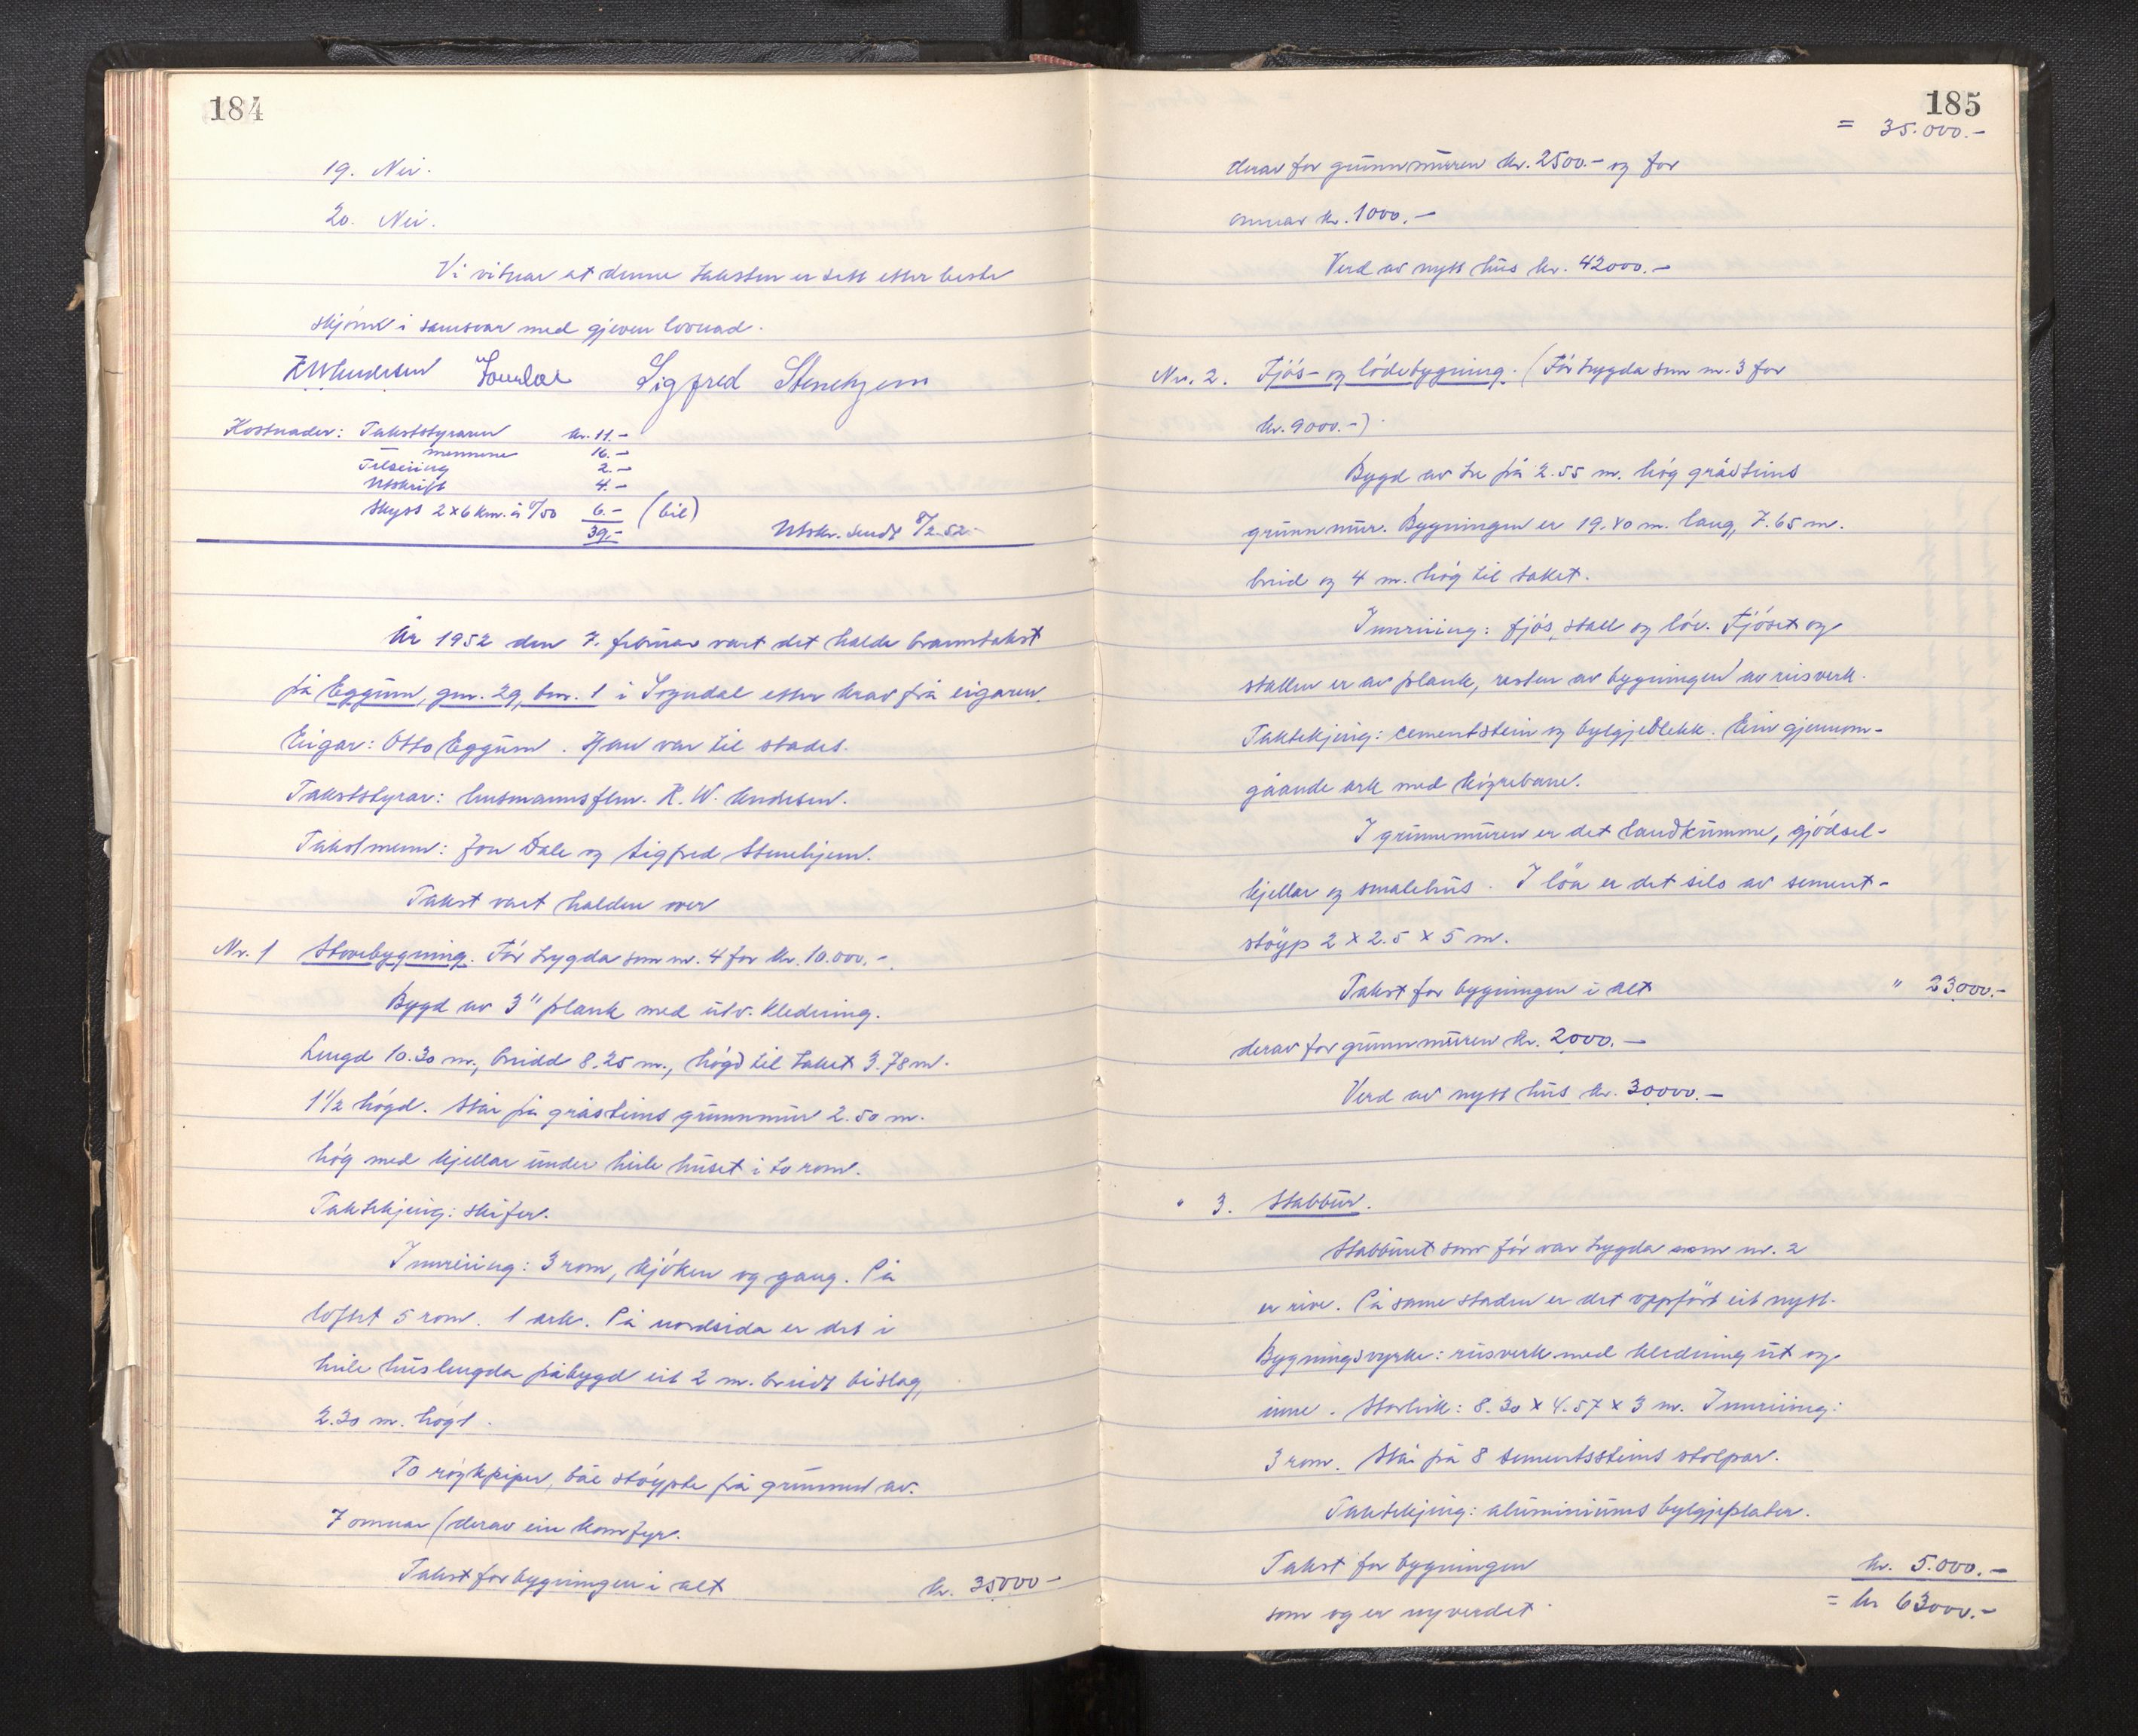 184
19. Nei.
20. Nei.
Vi vitnar at denne taksten er sett etter beste
skjønn i samsvar med gjeven lovnad.
R W Andersen Jon Dale Sigfred Stenehjem
Kostnader: Takststyraren kr. 11.-
— mennene 16.-
Tilseiing 2.-
Utskrift 4.-
Skyss 2 x 6 km. à 0/50 6.- (bil)
39.- Utskr. sendt 8/2.52.
År 1952 den 7. februar vart det halde branntakst
på Eggum, gnr. 29, bnr. 1 i Sogndal etter krav frå eigaren.
Eigar: Otto Eggum. Han var til stades.
Takststyrar: lensmannsflm. R. W. Andersen.
Takstmenn: Jon Dale og Sigfred Stenehjem.
Takst vart halden over
Nr. 1 Stovebygning. Før trygda som nr. 4 for kr. 10.000.-.
Bygd av 3" plank med utv. kledning.
Lengd 10.30 m., breidd 8.25 m., høgd til taket 3.78 m.
1 1/2 høgd. Står på gråsteins grunnmur 2.50 m.
høg med kjellar under heile huset i to rom.
Taktekjing: skifer.
Innreiing: 3 rom, kjøken og gang. På
loftet 5 rom. 1 ark. På nordsida er det i
heile huslengda påbygd eit 2 m. breidt bislag,
2.30 m. høgt.
To røykpiper, båe støypte frå grunnen av.
7 omnar (derav ein komfyr.
Takst for bygningen i alt kr. 35000-
185
= 35.000.-
derav for grunnmuren kr. 2500.- og for
omnar kr. 1000.-
Verd av nytt hus kr. 42000.-
Nr. 2. Fjøs- og lødebygning. (Før trygda som nr. 3 for
kr. 9000.-).
Bygd av tre på 2.55 m. høg gråsteins
grunnmur. Bygningen er 19.40 m. lang, 7.65 m.
breid og 4 m. høg til taket.
Innreiing: fjøs, stall og løe. Fjøset og
stallen er av plank, resten av bygningen av reisverk.
Taktekjing: cementstein og bylgjeblekk. Ein gjennom-
gåande ark med køyrebane.
I grunnmuren er det landkumme, gjødsel-
kjellar og smalehus. I löa er det silo av sement-
støyp 2 x 2.5 x 5 m.
Takst for bygningen i alt " 23000.-
derav for grunnmuren kr. 2000.-
Verd av nytt hus kr. 30000.-
" 3. Stabbur.
Stabburet som før var trygda som nr. 2
er rive. På same staden er det oppført eit nytt.
Bygningsvyrke: reisverk med kledning ut og
inne. Storleik: 8.30 x 4.57 x 3 m. Innreiing:
3 rom. Står på 8 sementssteins stolpar.
Taktekjing: aluminiums bylgjeplater.
Takst for bygningen kr. 5.000.-
som og er nyverdet = kr 63000.-